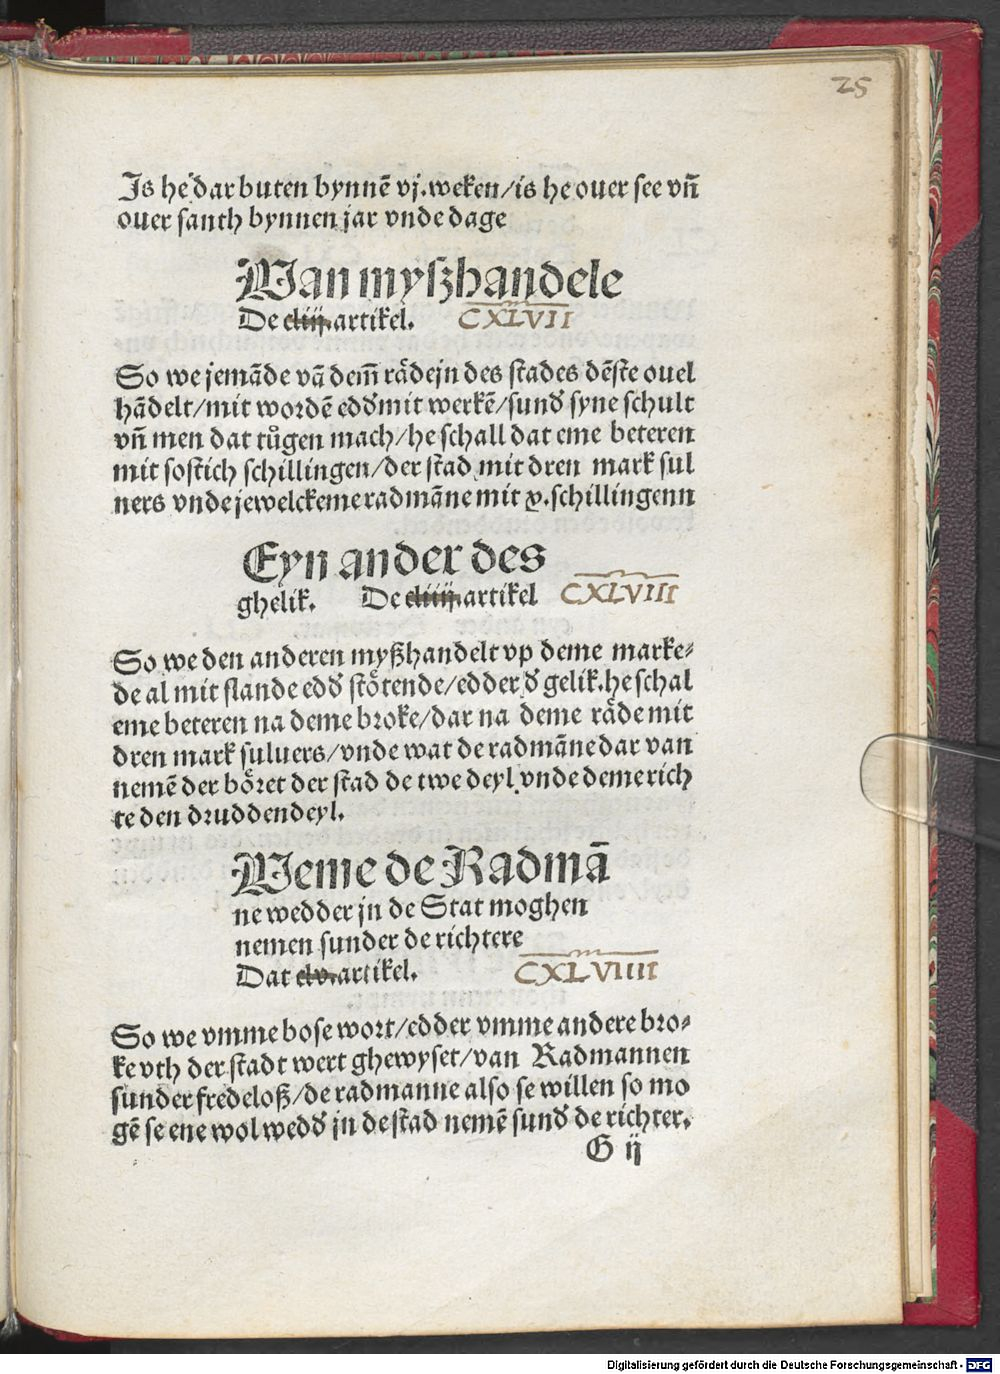 25
Is he dar buten bynnē vj. weken/is he ouer see vn̄
ouer santh bynnen jar vnde dage
Wan myszhandele
De cliij. artikel. CXLVII
So we jemāde vā dem̄ rådejn des stades dēste ouel
hādelt/mit wordē edd' mit werkē/sund' syne schult
vn̄ men dat tůgen mach/he schall dat eme beteren
mit sostich schillingen/der stad mit dren mark sul
uers vnde jewelckeme radmāne mit x. schillingenn
Eyn ander des
ghelik. De cliiij. artikel CXLVIII
So we den anderen myßhandelt vp deme marke⸗
de al mit slande edd' stötende/edder d' gelik. he schal
eme beteren na deme broke/dar na deme råde mit
dren mark suluers/vnde wat de radmāne dar van
nemē der böret der stad de twe deyl vnde deme rich
te den druddendeyl.
Weme de Radmā
ne wedder jn de Stat moghen
nemen sunder de richtere
Dat clv. artikel. CXLVIIII
So we vmme bose wort/edder vmme andere bro⸗
ke vth der stadt wert ghewyset/van Radmannen
sunder fredeloß/de radmanne also se willen so mo
gē se ene wol wedd' jn de stad nemē sund' de richter.
G ij
Digitalisierung gefördert durch die Deutsche Forschungsgemeinschaft - DFG